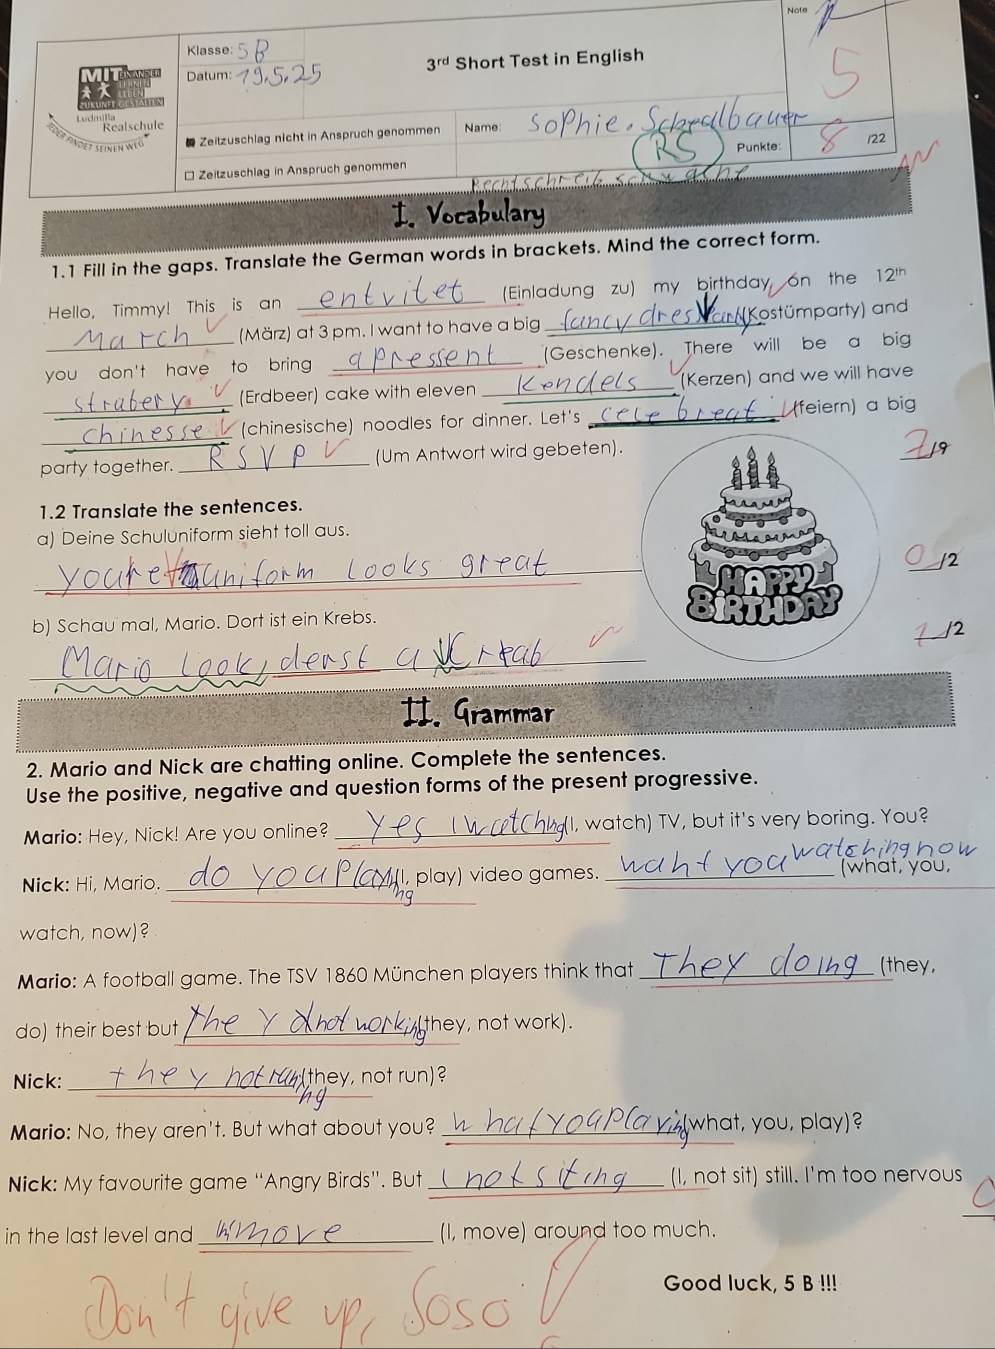 Note
Klasse: 5B
MITEINANDER
LERNEN
LEBEN
ZUKUNFT GESTALTEN
Datum: 19.5.25
3rd Short Test in English
5
Ludmilla
Realschule
JEDER FINDET SEINEN WEG
Zeitzuschlag nicht in Anspruch genommen
Name: Sophie.
RS
Punkte: 8 /22
☐ Zeitzuschlag in Anspruch genommen
I. Vocabulary
1.1 Fill in the gaps. Translate the German words in brackets. Mind the correct form.
Hello, Timmy! This is an entvitet (Einladung zu) my birthday on the 12th
March (März) at 3 pm. I want to have a big fancy dres (Kostümparty) and
you don't have to bring a pressent (Geschenke). There will be a big
strabery (Erdbeer) cake with eleven Kendels (Kerzen) and we will have
chinesse (chinesische) noodles for dinner. Let's cele breat (feiern) a big
party together. RSVP (Um Antwort wird gebeten).
7/9
1.2 Translate the sentences.
a) Deine Schuluniform sieht toll aus.
uniform looks great
0/2
HAPPY
BIRTHDAY
b) Schau mal, Mario. Dort ist ein Krebs.
Mario look, derst a
1/2
II. Grammar
2. Mario and Nick are chatting online. Complete the sentences.
Use the positive, negative and question forms of the present progressive.
Mario: Hey, Nick! Are you online? Yes I watching (I, watch) TV, but it's very boring. You?
Nick: Hi, Mario. do you playing (I, play) video games. waht you watching now (what, you,
watch, now)?
Mario: A football game. The TSV 1860 München players think that They doing (they,
do) their best but they not working (they, not work).
Nick: they not running (they, not run)?
Mario: No, they aren't. But what about you? what you playing (what, you, play)?
Nick: My favourite game "Angry Birds". But I not siting (I, not sit) still. I'm too nervous
0
in the last level and move (I, move) around too much.
Good luck, 5 B !!!
Don't give up, Soso!